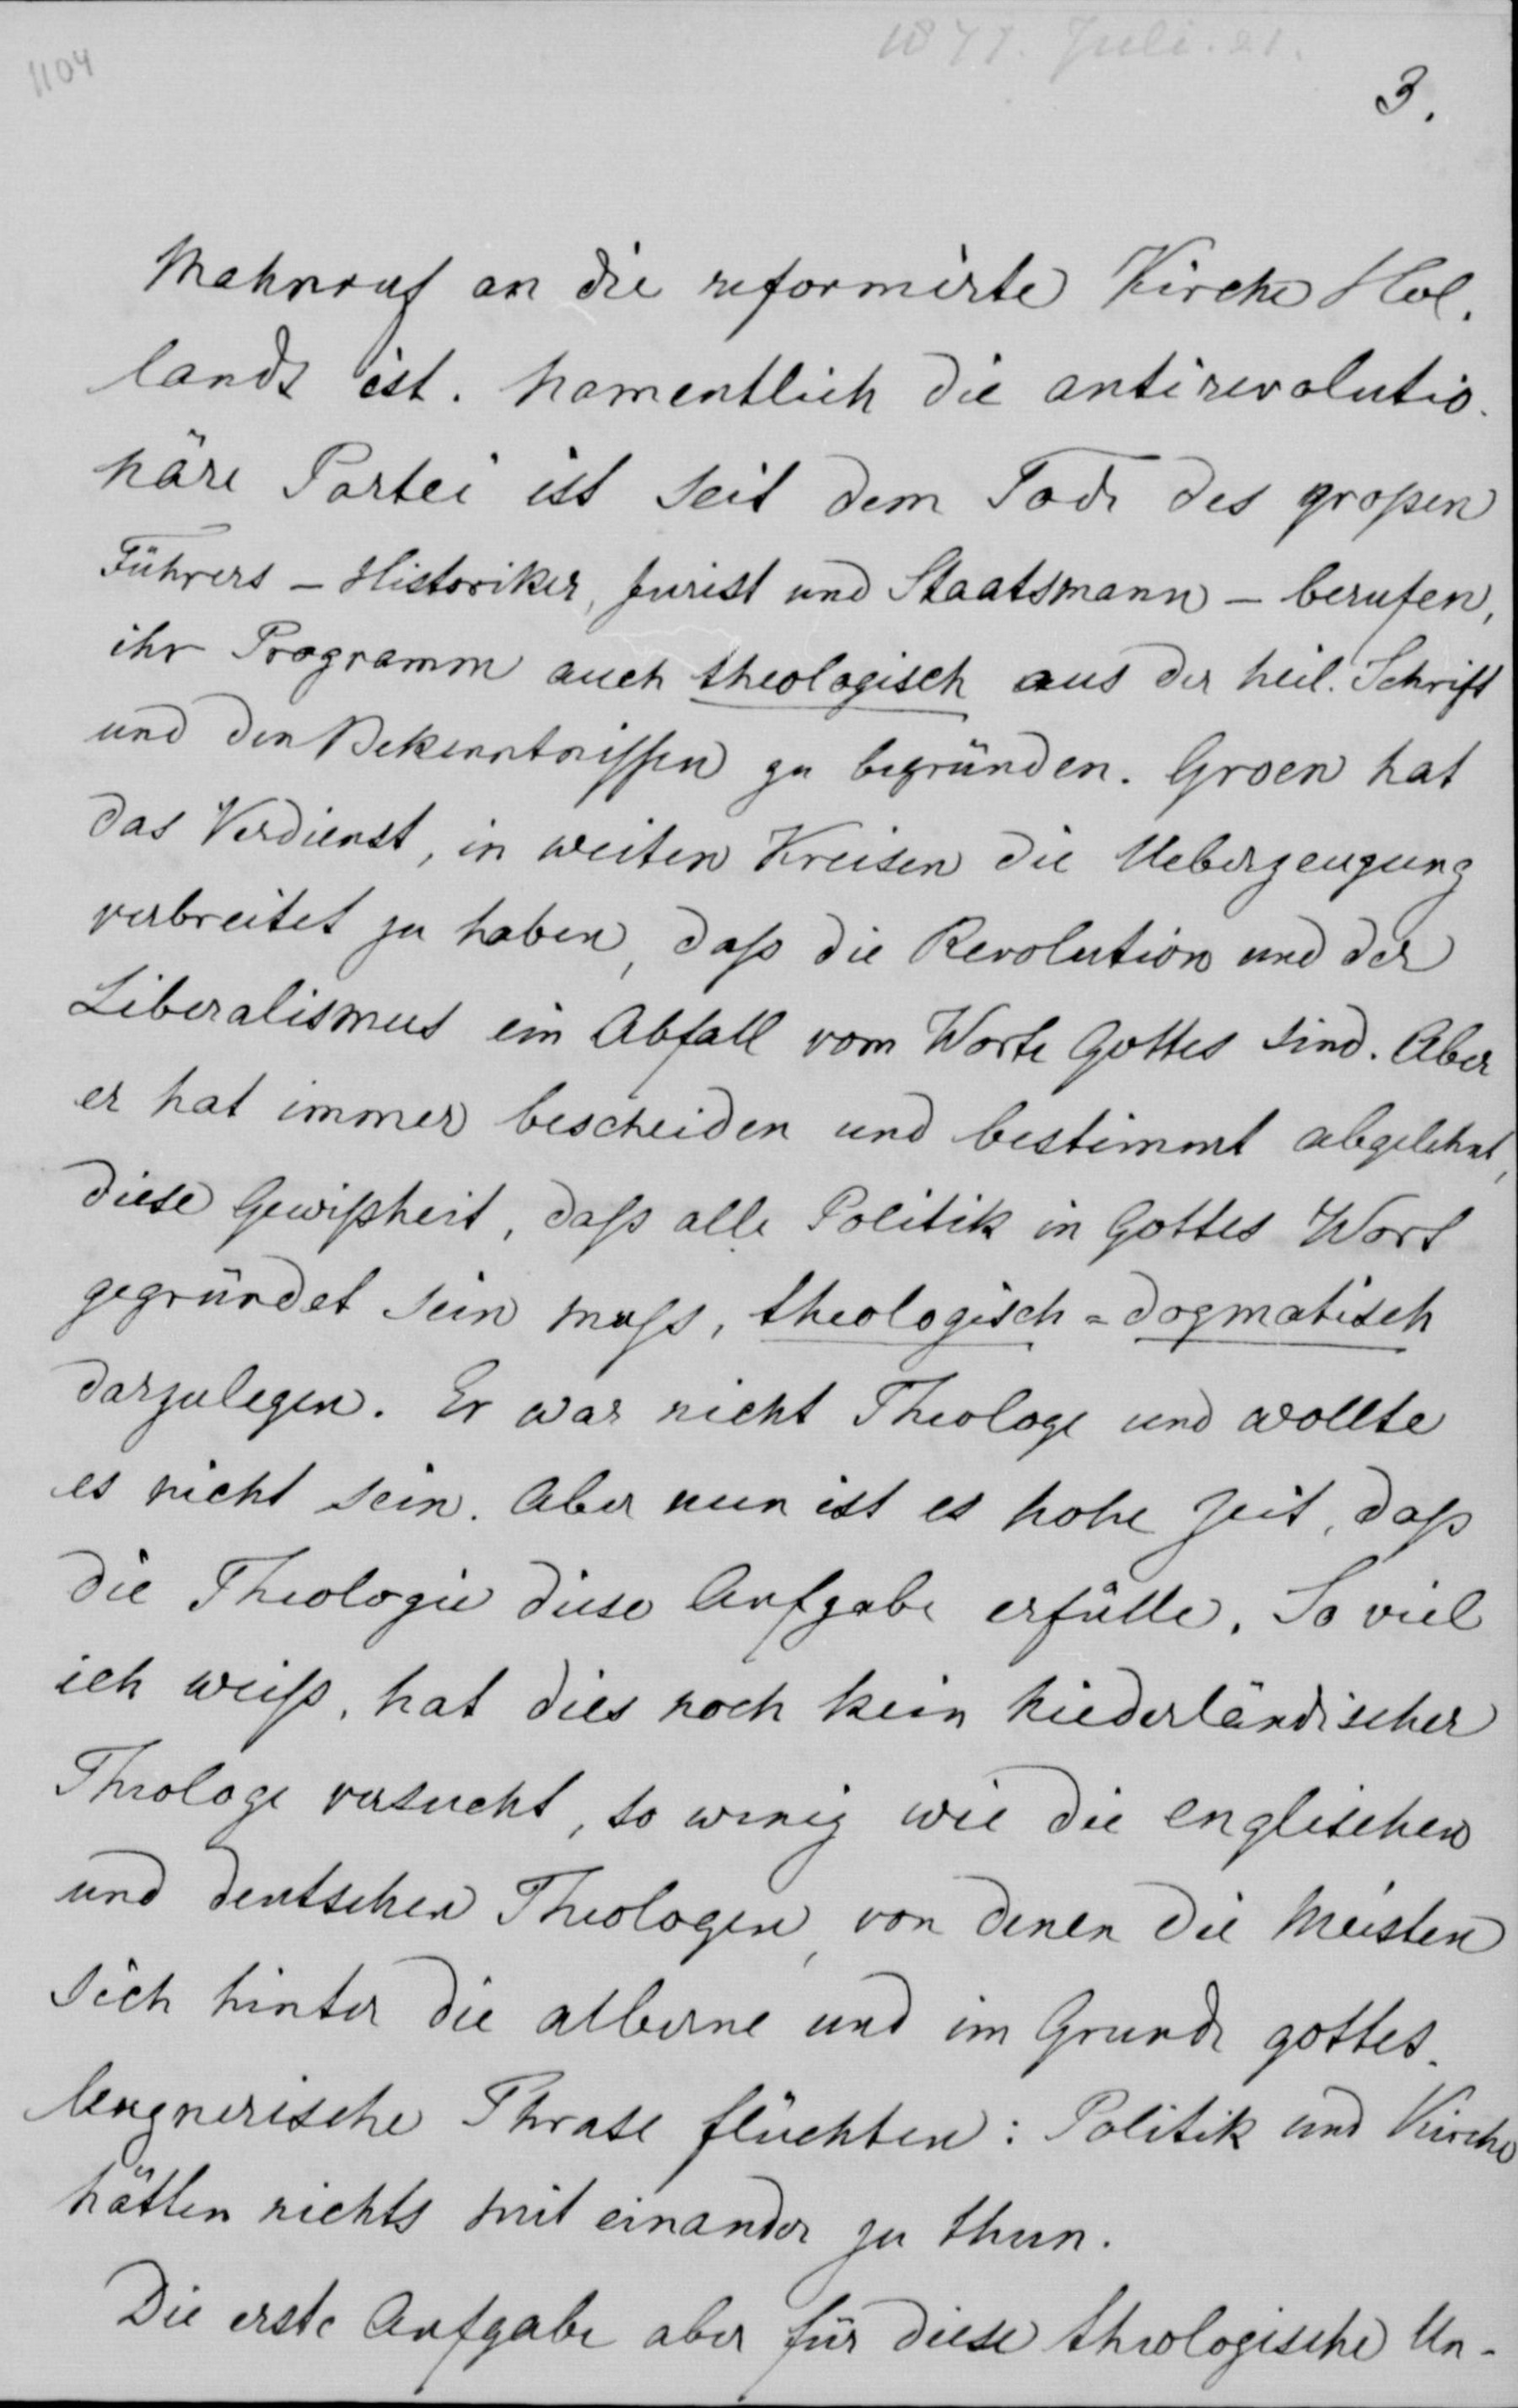 1877. Juli. 21.
1104
3.
Mahnruf an die reformirte Kirche Hol-
lands ist. Namentlich die antirevolutio-
näre Partei ist seit dem Tode des großen
Führers – Historiker, Jurist und Staatsmann – berufen,
ihr Programm auch theologisch aus der heil. Schrift
und den Bekenntnissen zu begründen. Groen hat
das Verdienst, in weiten Kreisen die Ueberzeugung
verbreitet zu haben, daß die Revolution und der
Liberalismus ein Abfall vom Worte Gottes sind. Aber
er hat immer bescheiden und bestimmt abgelehnt,
diese Gewißheit, daß alle Politik in Gottes Wort
gegründet sein muß, theologisch=dogmatisch
darzulegen. Er war nicht Theologe und wollte
es nicht sein. Aber nun ist es hohe Zeit, daß
die Theologie diese Aufgabe erfülle. So viel
ich weiß, hat dies noch kein niederländischer
Theologe versucht, so wenig wie die englischen
und deutschen Theologen, von denen die Meisten
sich hinter die alberne und im Grunde gottes-
leugnerische Phrase flüchten: Politik und Kirche
hätten nichts mit einander zu thun.
Die erste Aufgabe aber für diese theologische Un-